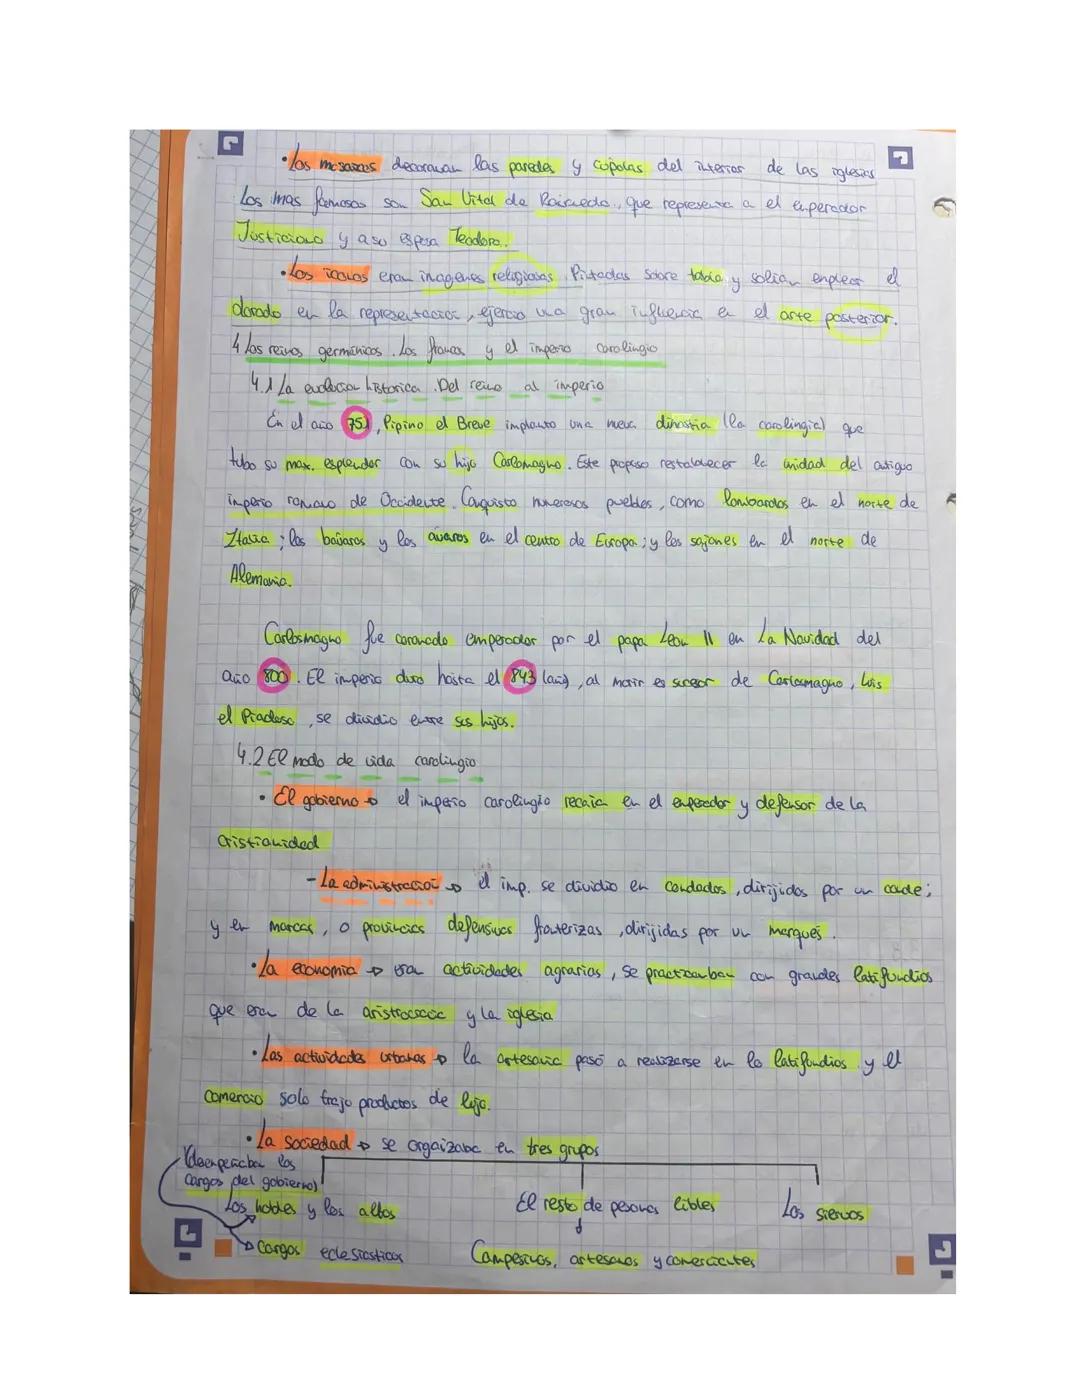 •Los mosaicos decoraban las paredes y cúpolas del interior de las iglesias
Los mas famosos son San Vital de Ravena, que representa a el emperador
Justiciano y a su esposa Teodora.
•Los iconos eran imagenes religiosas. Pintadas sobre tabla y solian emplear el
dorado en la representacion, ejercio una gran influencia en el arte posterior.
4 Los reinos germánicos. Los francos y el imperio carolingio
4.1 La evolucion historica. Del reino al imperio
En el año 751, Pipino el Breve implanto una nueva dinastia (la carolingia) que
tubo su max. esplendor con su hijo Carlomagno. Este propuso restablecer la unidad del antiguo
imperio romano de Occidente. Conquisto numerosos pueblos, como lombardos en el norte de
Italia; los bávaros y los ávaros en el centro de Europa; y los sajones en el norte de
Alemania.
Carlosmagno fue coronado emperador por el papa Leon II en La Navidad del
año 800. El imperio duro hasta el 843 (año), al morir es sucesor de Carlosmagno, Luis
el Piadoso, se dividio entre sus hijos.
4.2 El modo de vida carolingio
• El gobierno → el imperio carolingio recaia en el emperador y defensor de la
cristianidad
- La administracion → el imp. se dividio en condados, dirijidos por un conde;
y en marcas, o provincias defensivas fronterizas, dirijidas por un marqués.
•La economia → eran actividades agrarias, se practicaban con grandes latifundios
que eran de la aristocracia y la iglesia
•Las actividades urbanas → la artesania pasó a realizarse en lo latifundios y el
comercio solo trajo productos de lujo.
•La sociedad → se orgaizaba en tres grupos
(desenpeñaban los
cargos del gobierno)
Los nobles y los altos
cargos eclesiasticos
El resto de pesonas libles
Campesinos, artesanos y comerciantes
Los siervos